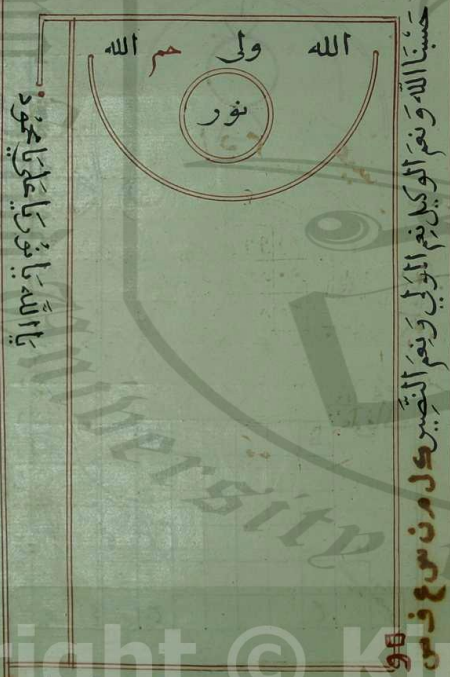 الله ولى حم الله
نور
حَسْبُنَا اللّٰه وَنِعْمَ الْوَكِيل نِعْمَ الْمَوْلَى وَنِعْمَ النَّصِير ك ل م ن س ع ف ص
يَا اَللّٰه يَا نُور يَا عَلِيّ يَا
University
right © Ki